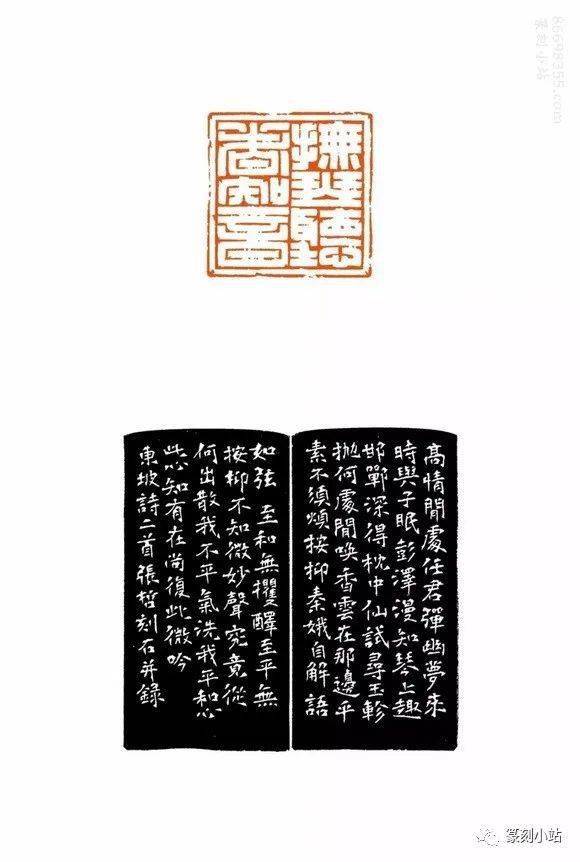 86698355.com
篆刻小站
撫琴聽
知音
高情閒處任君彈幽夢來
時與子眠彭澤漫知琴上趣
邯鄲深得枕中仙試尋玉軫
抛何處閒喚香雲在那邊平
素不須煩按抑秦娥自解語
如弦 至和無攫醳至平無
按抑不知微妙聲究竟從
何出散我不平氣洗我不和心
此心知有在尚復此微吟
東坡詩二首張哲刻石并錄
篆刻小站